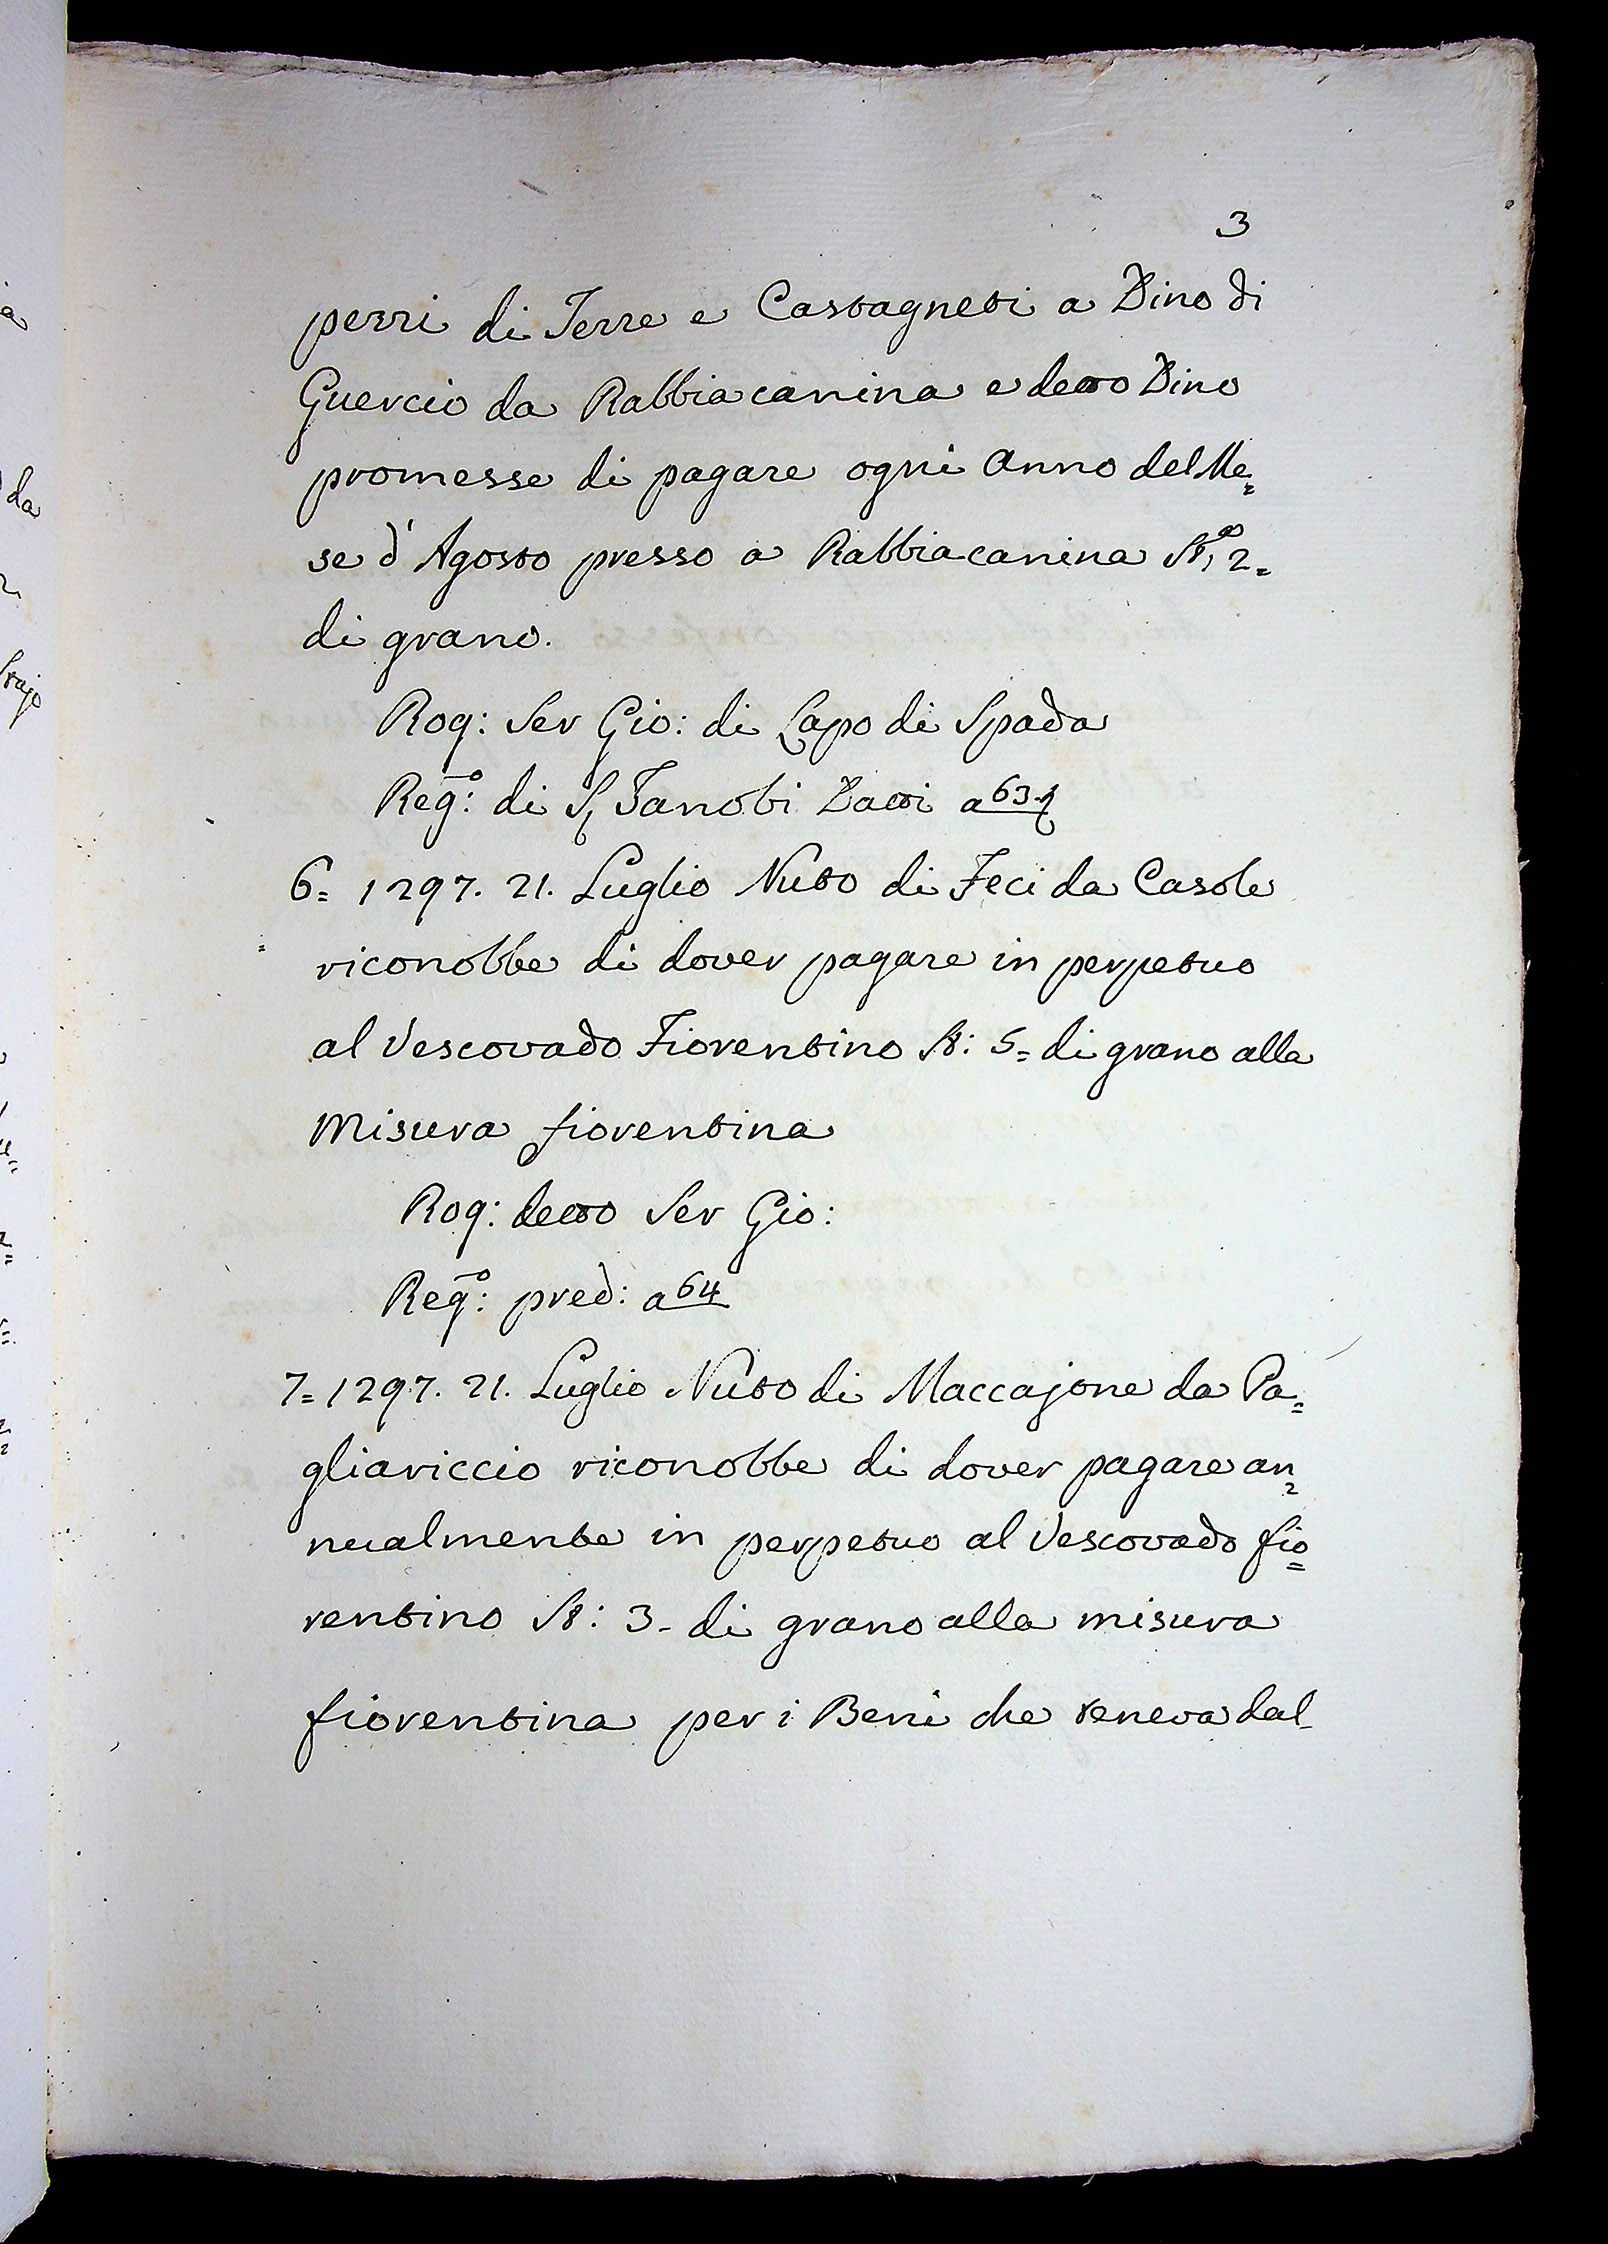 3
pezzi di Terre e Castagneti a Dino di
Guercio da Rabbiacanina e detto Dino
promesse di pagare ogni Anno del Me=
se d'Agosto presso a Rabbiacanina St: 2=
di grano.
Rog: Ser Gio: di Lapo di Spada
Reg:º di S. Zanobi Datti a 63
6= 1297. 21. Luglio Nuto di Feci da Casole
riconobbe di dover pagare in perpetuo
al Vescovado Fiorentino St: 5= di grano alla
Misura fiorentina
Rog: detto Ser Gio:
Reg:º pred: a 64
7= 1297. 21. Luglio Nuto di Maccajone da Pa=
gliariccio riconobbe di dover pagare an=
nualmente in perpetuo al Vescovado fio=
rentino St: 3- di grano alla misura
fiorentina per i Beni che teneva dal